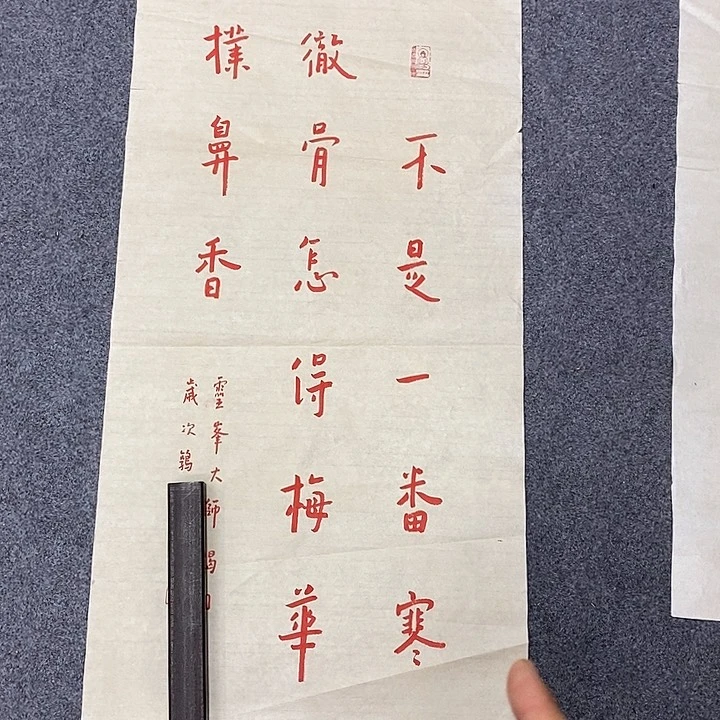 不是一番寒
徹骨怎得梅華
撲鼻香
靈峯大師
歲次鶉